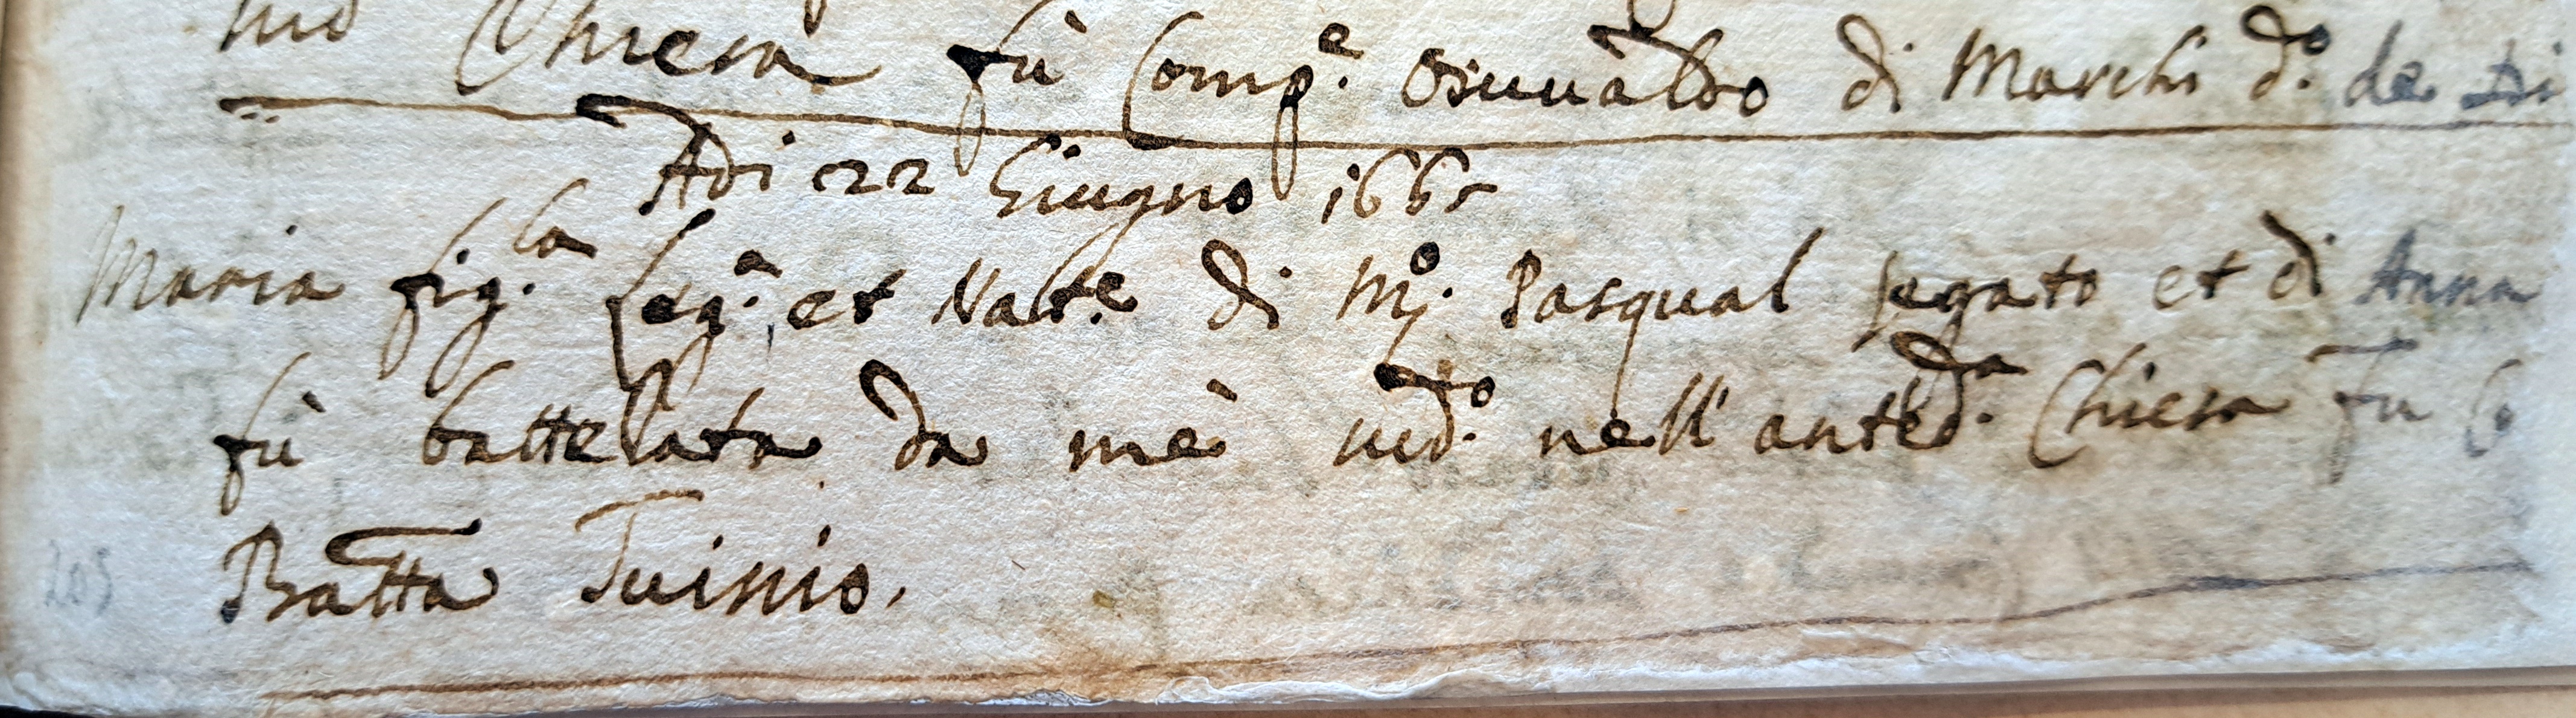 Chiesa fù Comp.e Osuualdo di Marchi d.o de
Adi 22 Giugno 1665
Maria fig.la Leg.a et Nat.e di M.o Pasqual segato et di Anna
fù battezata da mè ued.o nell' anted.a Chiesa fu
Batta Tuisio.
205